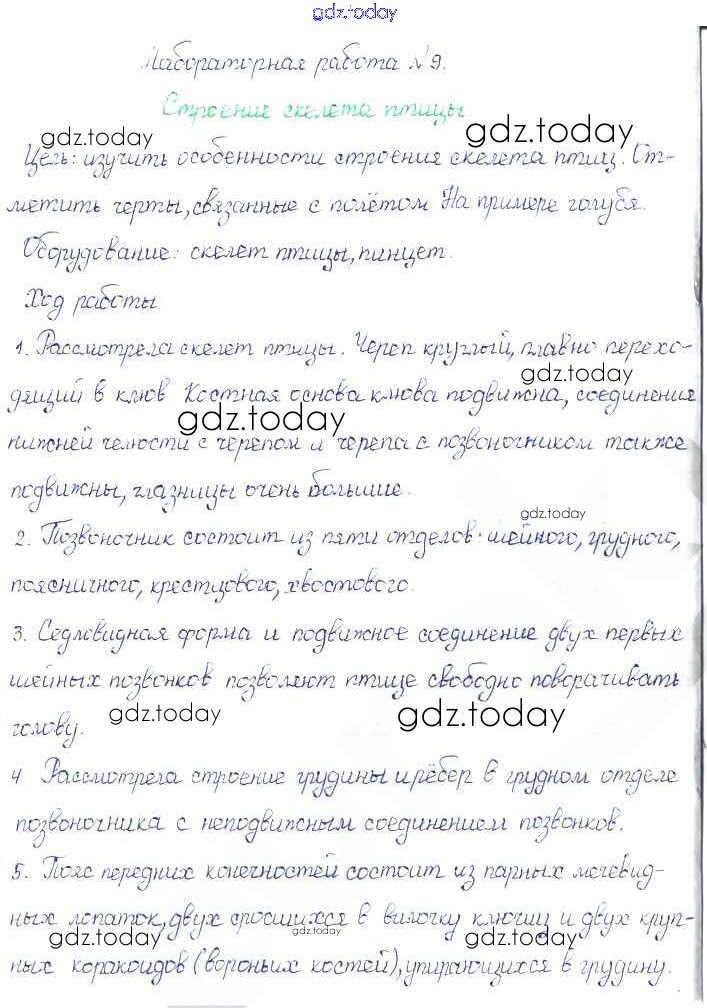 gdz.today
Лабораторная работа №9.
Строение скелета птицы.
gdz.today gdz.today
Цель: изучить особенности строения скелета птиц. От-
метить черты, связанные с полётом На примере голубя.
Оборудование: скелет птицы, пинцет.
Ход работы
1. Рассмотрела скелет птицы. Череп круглый, плавно перехо-
gdz.today
дящий в клюв Костная основа клюва подвижна, соединения
gdz.today
нижней челюсти с черепом и черепа с позвоночником также
подвижны, глазницы очень большие.
gdz.today
2. Позвоночник состоит из пяти отделов: шейного, грудного,
поясничного, крестцового, хвостового.
3. Седловидная форма и подвижное соединение двух первых
шейных позвонков позволяют птице свободно поворачивать
gdz.today gdz.today
голову.
4 Рассмотрела строение грудины и рёбер в грудном отделе
позвоночника с неподвижным соединением позвонков.
5. Пояс передних конечностей состоит из парных мечевид-
ных лопаток, двух сросшихся в вилочку ключиц и двух круп-
gdz.today gdz.today gdz.today
ных коракоидов (вороньих костей), упирающихся в грудину.